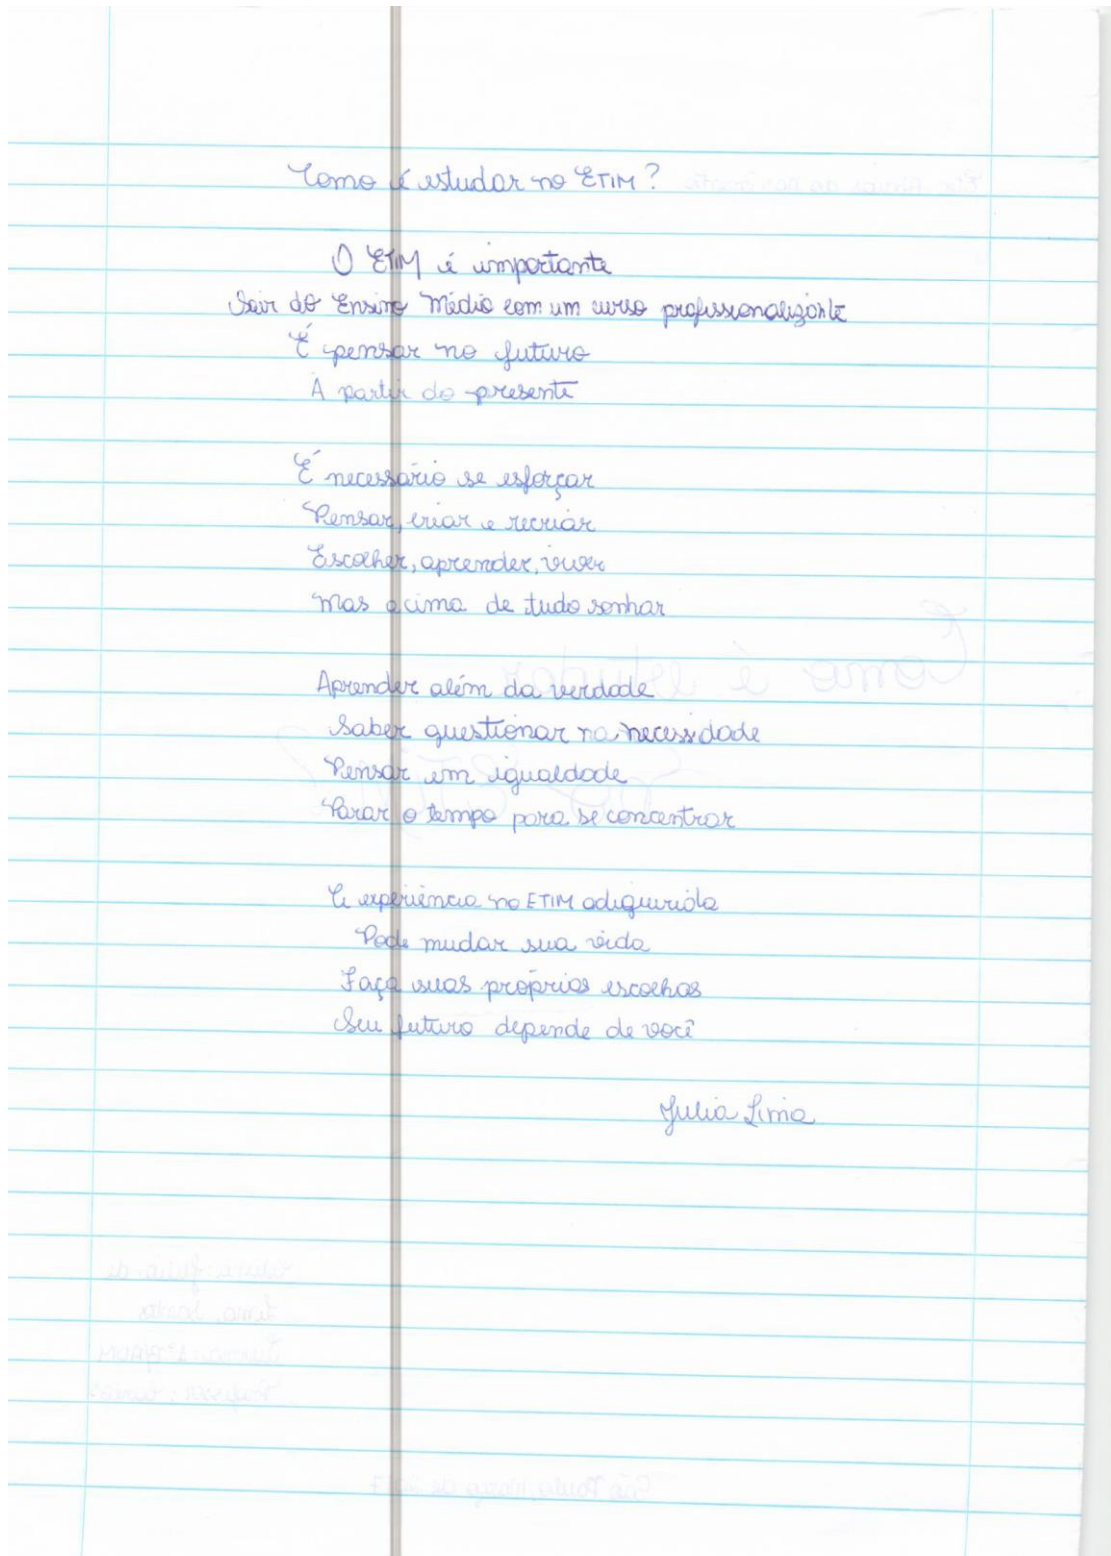 Como é estudar no ETIM?
O ETIM é importante
Sair do Ensino Médio com um curso profissionalizante
É pensar no futuro
A partir do presente
É necessário se esforçar
Pensar, criar e recriar
Escolher, aprender, viver
Mas acima de tudo sonhar
Aprender além da verdade
Saber questionar na necessidade
Pensar em igualdade
Parar o tempo para se concentrar
A experiência no ETIM adiquirida
Pode mudar sua vida
Faça suas próprias escolhas
Seu futuro depende de você
Julia Lima